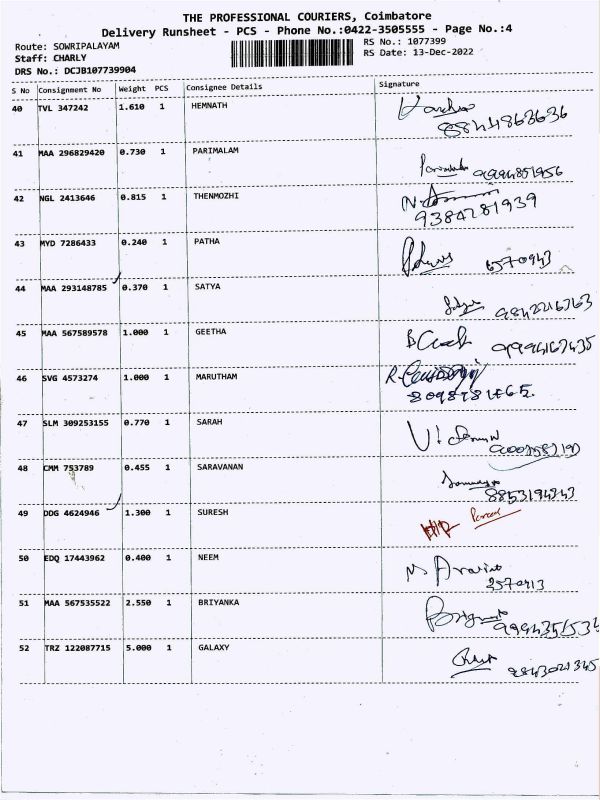 THE PROFESSIONAL COURIERS, Coimbatore
Delivery Runsheet - PCS - Phone No.:0422-3505555 - Page No.:4
Route: SOWRIPALAYAM
RS No.: 1077399
Staff: CHARLY
RS Date: 13-Dec-2022
DRS No.: DCJB107739904
S No Consignment No Weight PCS Consignee Details Signature
40 TVL 347242 1.610 1 HEMNATH
41 MAA 296829420 0.730 1 PARIMALAM
9994851956
42 NGL 2413646 0.815 1 THENMOZHI
9384281939
43 MYD 7286433 0.240 1 PATHA
6570943
44 MAA 293148785 0.370 1 SATYA
45 MAA 567589578 1.000 1 GEETHA
9994167435
46 SVG 4573274 1.000 1 MARUTHAM
47 SLM 309253155 0.770 1 SARAH
48 CMM 753789 0.455 1 SARAVANAN
49 DDG 4624946 1.300 1 SURESH
50 EDQ 17443962 0.400 1 NEEM
51 MAA 567535522 2.550 1 BRIYANKA
52 TRZ 122087715 5.000 1 GALAXY
9843021345